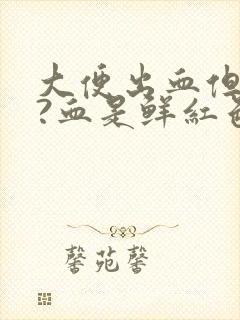 大便出血但
?血是鲜红色
馨苑馨